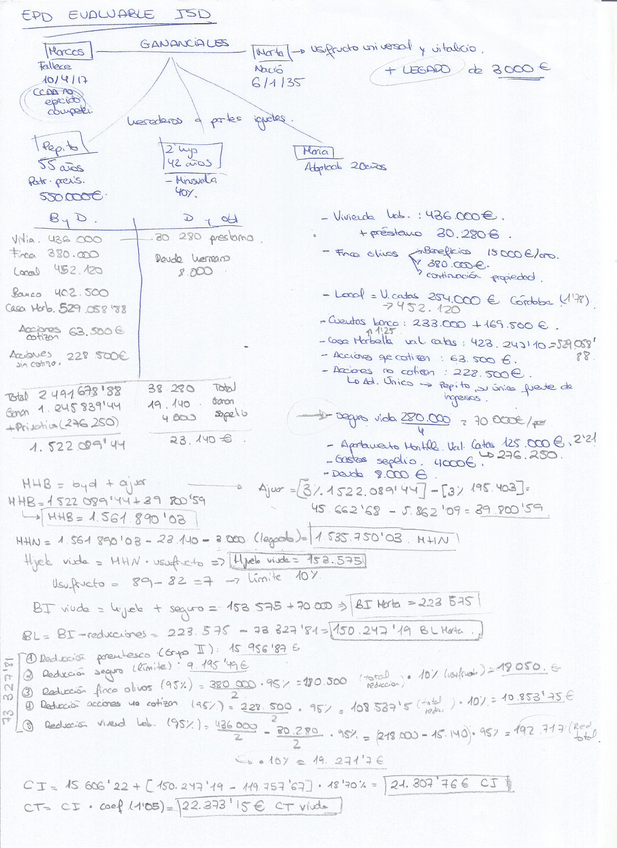 EPD EVALUABLE ISD
GANANCIALES
Marcos
Fallece
10/4/17
CCAA no
ejercido
competen.
Marta → Usufructo universal y vitalicio.
Nació
6/1/35
+ LEGADO de 3000 €
herederos a partes iguales.
Pepito
55 años
Patr. preexis.
550.000€.
2º hijo
42 años
- Minusvalía
40%.
Maria
Adoptada 20 años
B y D.
D y obl
Vivia. 436.000
Finca 380.000
Local 452.120
Banco 402.500
Casa Marb. 529.058'88
Acciones
cotizan 63.500€
Acciones
sin cotiz. 228.500€
30 280 préstamo.
Deuda
8.000
Total 2 491 678'88
Ganan 1.245 839'44
+ Privativa (276 250)
1.522 089'44
38 280 Total
19.140 Ganan
4000 sepelio
23.140 €.
- Vivienda hab. : 436.000€.
+ préstamo 30.280€.
- Finca olivos
Beneficios 15000 €/año.
380.000€.
continuación propiedad.
- Local = V. catas 254.000 € Córdoba (1'78)
→ 452.120
- Cuentas banco : 233.000 + 169.500 €.
1'25
- Casa Marbella val catas : 423.247'10 = 529.058'
88
- Acciones que cotizan : 63.500 €.
- Acciones no cotizan : 228.500 €.
↳ Ad. Único → Pepito, su única fuente de
ingresos.
→ Seguro vida 280.000 = 70 000€/per
4
- Apartamento Val. Catas 125.000 €. 2'21
↳ 276.250.
- Gastos sepelio. 4000€.
- Deuda 8.000 €.
MHB = byd + ajuar
Ajuar = [3%. 1522.089'44] - [3% 195.403] =
MHB = 1 522 089'44 + 39 800'59
45.662'68 - 5.862'09 = 39.800'59
↳ MHB = 1.561.890'03
MHN = 1.561 890'03 - 23.140 - 3 000 (legado) = 1 535.750'03. MHN
Hijuela viuda = MHN · usufructo ⇒ Hijuela viuda = 153.575
Usufructo = 89 - 82 = 7 → Límite 10%
BI viuda = hijuela + seguro = 153 575 + 70 000 ⇒ BI Marta = 223 575
BL = BI - reducciones = 223.575 - 73 327'81 = 150.247'19 BL Marta.
73 327'81
① Reducción parentesco (Grupo II): 15 956'87 €
② Reducción seguro (límite) : 9.195'49€
③ Reducción finca olivos (95%) = 380.000 · 95% = 180.500 (total reducción) · 10% (usufruc) = 18 050. €
2
④ Reducción acciones no cotizan (95%) = 228.500 · 95% = 108 537'5 (total redu.) · 10% = 10.853'75 €
2
⑤ Reducción viviend hab. (95%) = 436 000 - 30.280 · 95% = (218 000 - 15.140) · 95% = 192.717 (Red total
2 2
↳ · 10% = 19.271'7 €
CI = 15 606'22 + [150.247'19 - 119 757'67] · 18'70% = 21.307'766 CI
CT = CI · coef (1'05) = 22.373'15 € CT viuda